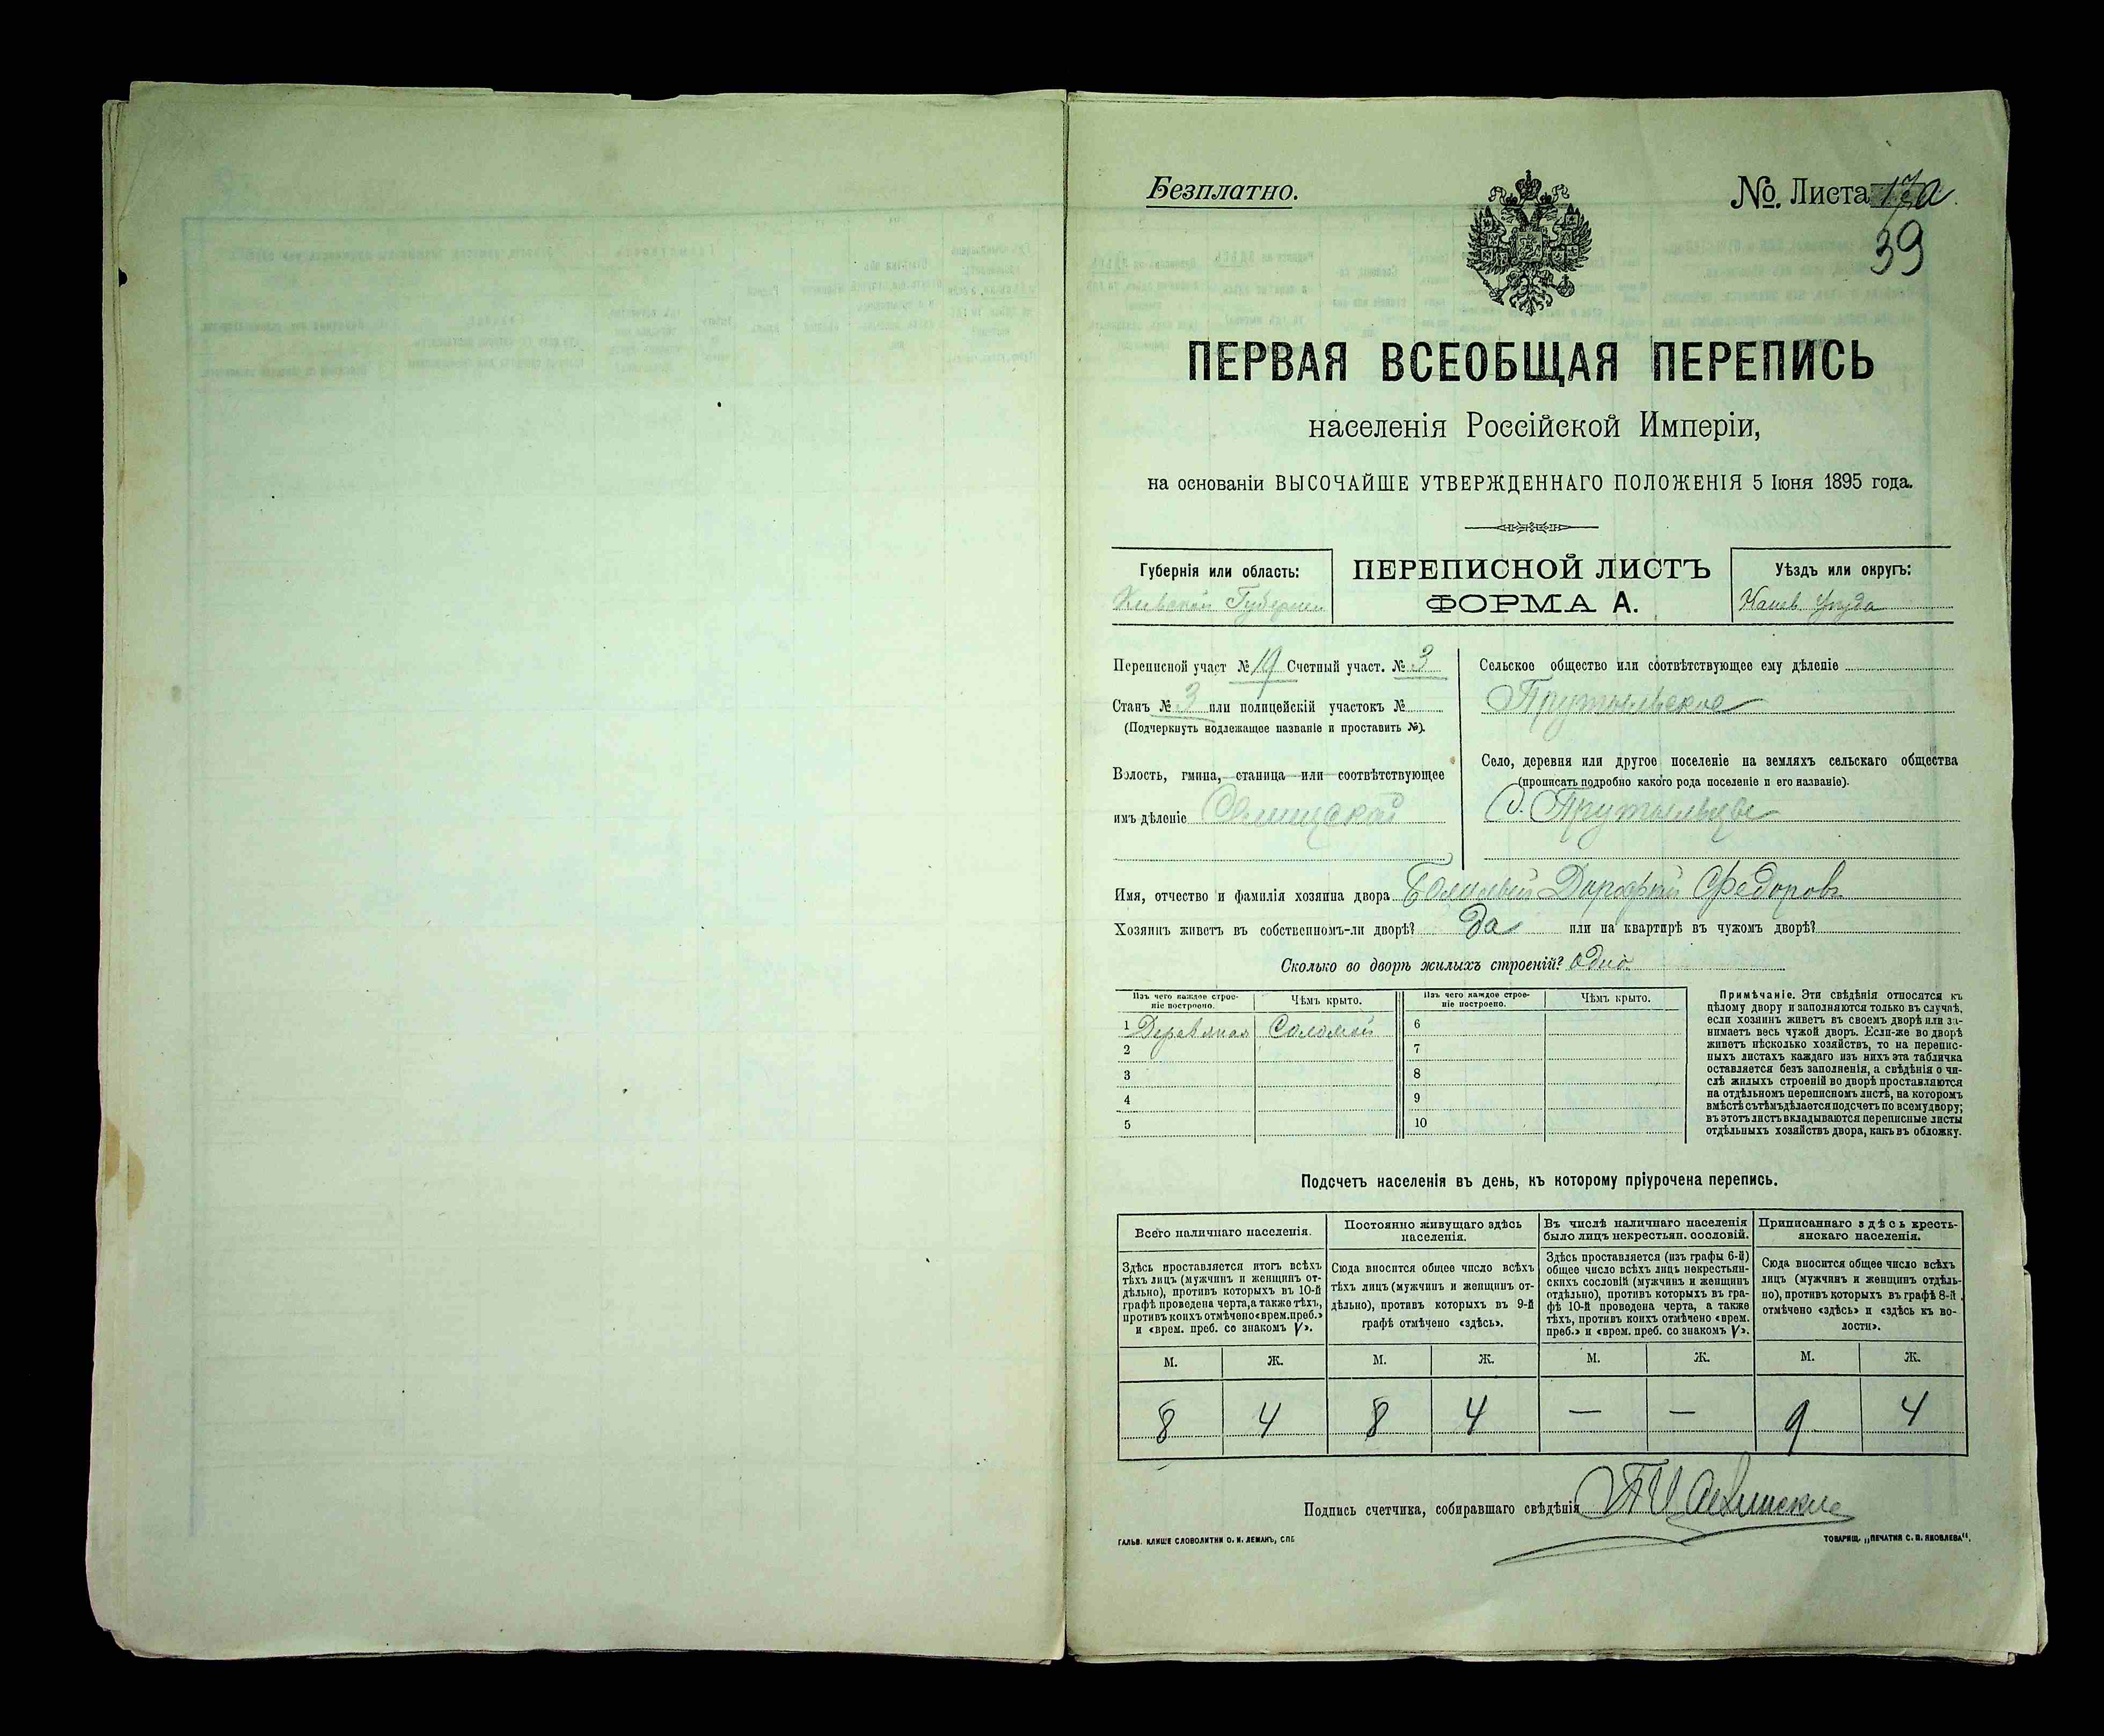 Безплатно.
№. Листа
39
ПЕРВАЯ ВСЕОБЩАЯ ПЕРЕПИСЬ
населенія Россійской Имперіи,
на основаніи ВЫСОЧАЙШЕ УТВЕРЖДЕННАГО ПОЛОЖЕНІЯ 5 Іюня 1895 года.
Губернія или область:
Кіевской Губерніи
ПЕРЕПИСНОЙ ЛИСТЪ
ФОРМА А.
Уѣздъ или округъ:
Канев уѣзда
Переписной участ № 19 Счетный участ. № 3
Станъ № 3 или полицейскій участокъ №
(Подчеркнуть подлежащее названіе и проставить №).
Волость, гмина, станица или соотвѣтствующее
имъ дѣленіе
Сельское общество или соотвѣтствующее ему дѣленіе
Село, деревня или другое поселеніе на земляхъ сельскаго общества
(прописать подробно какого рода поселеніе и его названіе).
Имя, отчество и фамилія хозяина двора Дорофей Федоровъ
Хозяинъ живетъ въ собственномъ-ли дворѣ? Да или на квартирѣ въ чужомъ дворѣ?
Сколько во дворѣ жилыхъ строеній? одно
Изъ чего каждое строе-
ніе построено.
Чѣмъ крыто.
1 Деревяная Соломой
2
3
4
5
Изъ чего каждое строе-
ніе построено.
Чѣмъ крыто.
6
7
8
9
10
Примѣчаніе. Эти свѣдѣнія относятся къ
цѣлому двору и заполняются только въ случаѣ,
если хозяинъ живетъ въ своемъ дворѣ или за-
нимаетъ весь чужой дворъ. Если-же во дворѣ
живетъ нѣсколько хозяйствъ, то на перепис-
ныхъ листахъ каждаго изъ нихъ эта табличка
оставляется безъ заполненія, а свѣдѣнія о чи-
слѣ жилыхъ строеній во дворѣ проставляются
на отдѣльномъ переписномъ листѣ, на которомъ
вмѣстѣ съ тѣмъ дѣлается подсчетъ по всему двору;
въ этотъ листъ вкладываются переписные листы
отдѣльныхъ хозяйствъ двора, какъ въ обложку.
Подсчетъ населенія въ день, къ которому пріурочена перепись.
Всего наличнаго населенія.
Здѣсь проставляется итогъ всѣхъ
тѣхъ лицъ (мужчинъ и женщинъ от-
дѣльно), противъ которыхъ въ 10-й
графѣ проведена черта, а также тѣхъ,
противъ коихъ отмѣчено «врем. преб.»
и «врем. преб. со знакомъ V».
Постоянно живущаго здѣсь
населенія.
Сюда вносится общее число всѣхъ
тѣхъ лицъ (мужчинъ и женщинъ от-
дѣльно), противъ которыхъ въ 9-й
графѣ отмѣчено «здѣсь».
Въ числѣ наличнаго населенія
было лицъ некрестьян. сословій.
Здѣсь проставляется (изъ графы 6-й)
общее число всѣхъ лицъ некрестьян-
скихъ сословій (мужчинъ и женщинъ
отдѣльно), противъ которыхъ въ гра-
фѣ 10-й проведена черта, а также
тѣхъ, противъ коихъ отмѣчено «врем.
преб.» и «врем. преб. со знакомъ V».
Приписаннаго здѣсь кресть-
янскаго населенія.
Сюда вносится общее число всѣхъ
лицъ (мужчинъ и женщинъ отдѣль-
но), противъ которыхъ въ графѣ 8-й
отмѣчено «здѣсь» и «здѣсь къ во-
лости».
М. Ж. М. Ж. М. Ж. М. Ж.
8 4 8 4 — — 9 4
Подпись счетчика, собиравшаго свѣдѣнія
ГАЛЬВ. КЛИШЕ СЛОВОЛИТНИ О. И. ЛЕМАНЪ, СПБ
ТОВАРИЩ. „ПЕЧАТНЯ С. П. ЯКОВЛЕВА“.